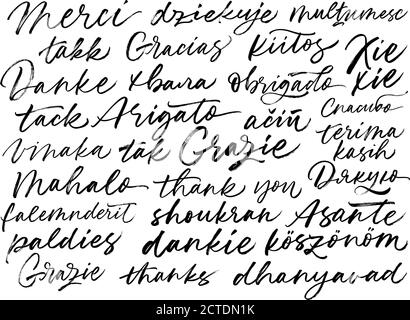 Merci dziękuje multumesc
takk Gracias kiitos Xie
Danke хвала obrigado xie
tack Arigato ačiū Спасибо
vinaka tak Grazie terima kasih
Mahalo thank you Дякую
falemnderit shoukran Asante
paldies dankie köszönöm
Grazie thanks dhanyavad
alamy
Image ID: 2CTDN1K
www.alamy.com